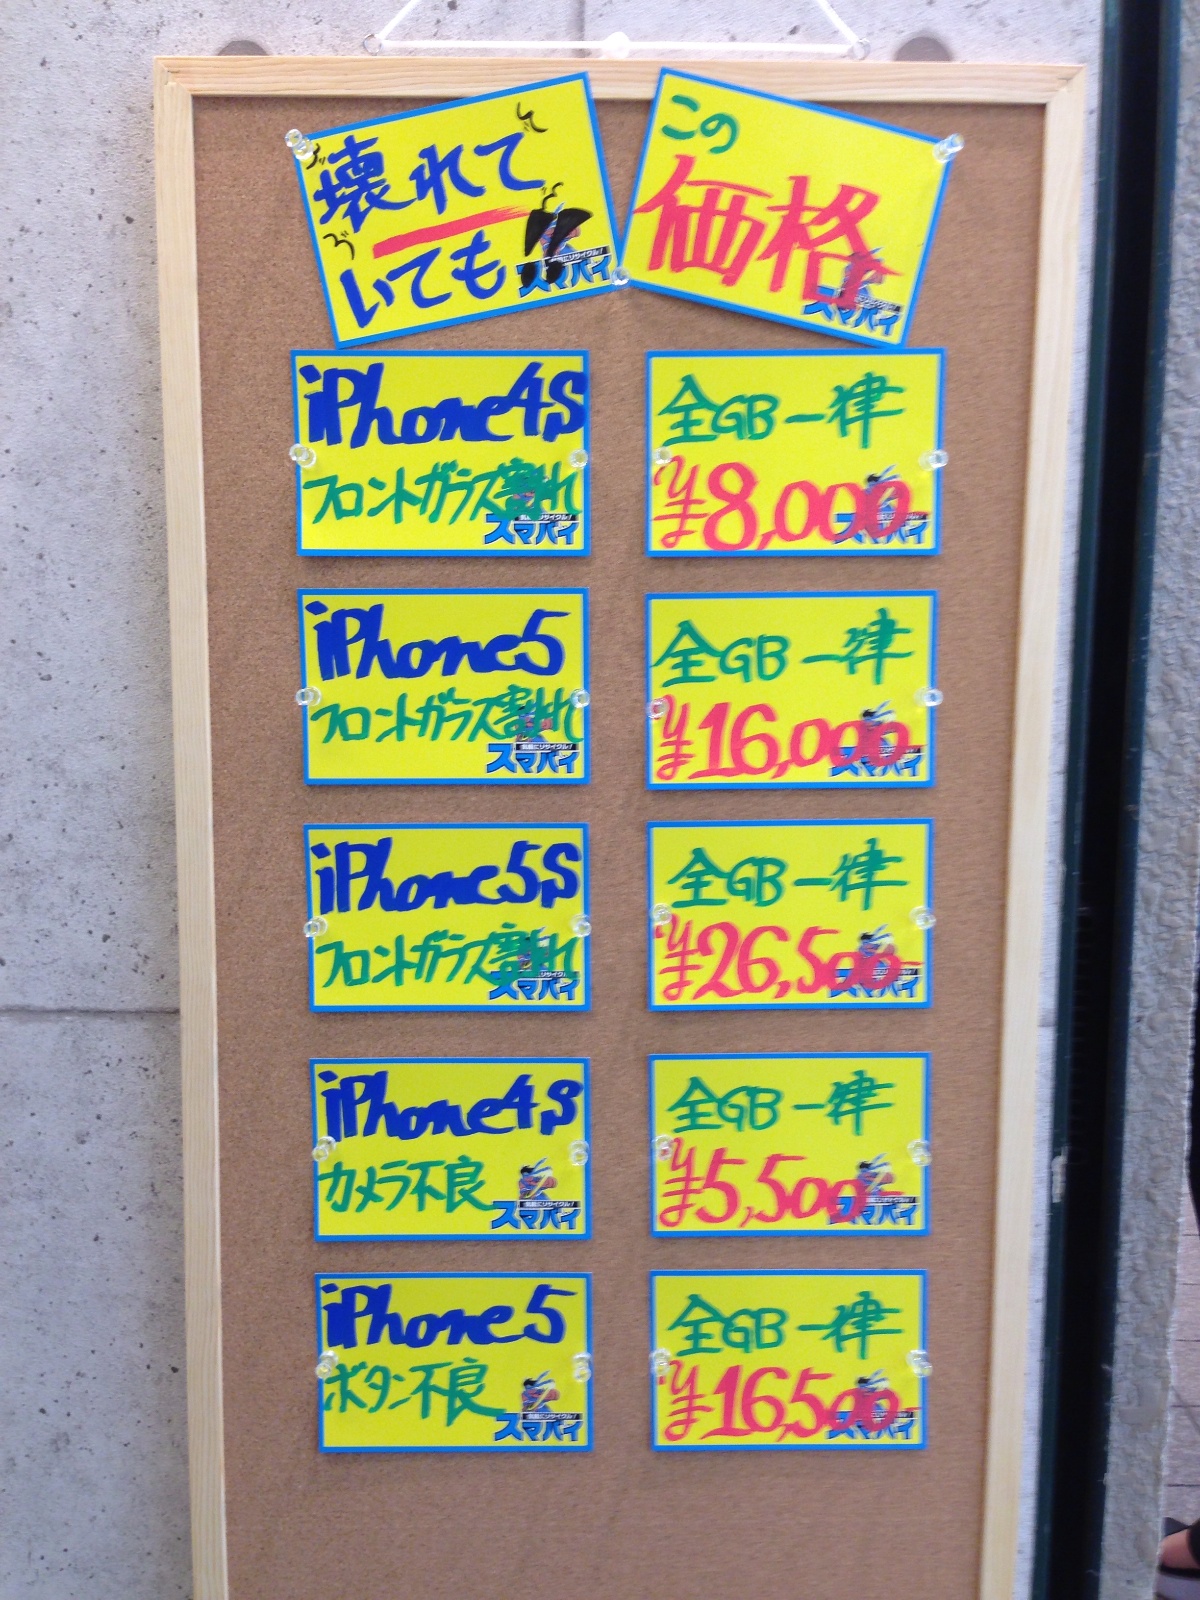 壊れて
いても
スマバイ
この
価格
スマバイ
iPhone4S
フロントガラス割れ
スマバイ
全GB一律
¥8,000
スマバイ
iPhone5
フロントガラス割れ
気軽にリサイクル!
スマバイ
全GB一律
¥16,000
スマバイ
iPhone5S
フロントガラス割れ
スマバイ
全GB一律
¥26,500
スマバイ
iPhone4S
カメラ不良
気軽にリサイクル!
スマバイ
全GB一律
¥5,500
スマバイ
iPhone5
ボタン不良
気軽にリサイクル!
スマバイ
全GB一律
¥16,500
スマバイ